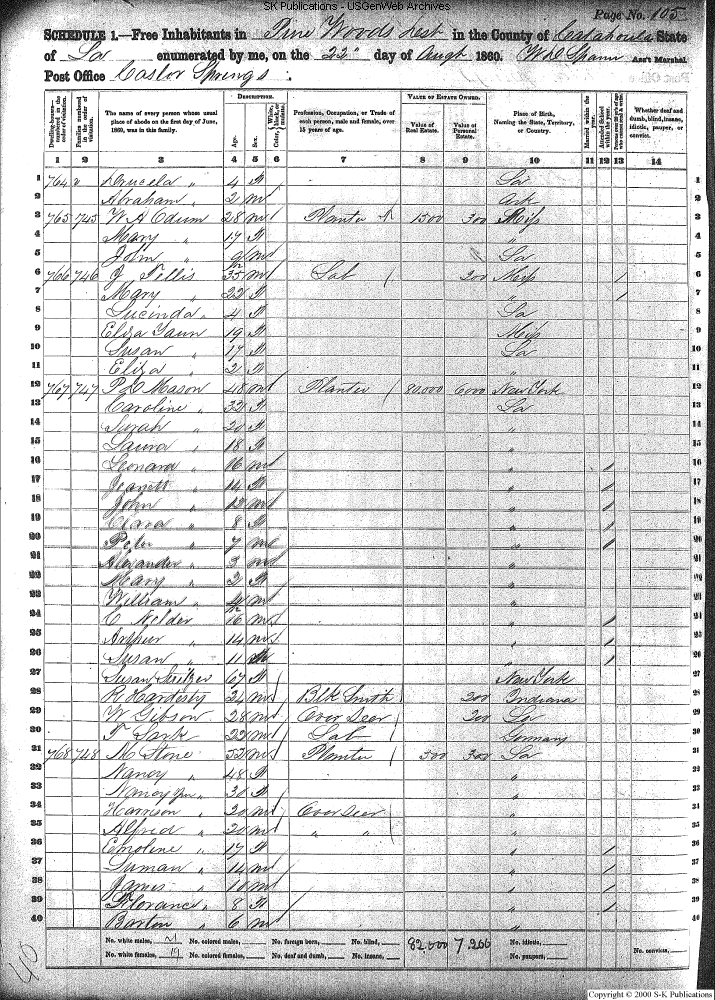 SK Publications - USGenWeb Archives
Page No. 105
SCHEDULE 1.—Free Inhabitants in Pine Woods Dist in the County of Catahoula State
of La enumerated by me, on the 22" day of Augt 1860. W Spann Ass't Marshal
Post Office Castor Springs.
Dwelling-houses—numbered in the order of visitation.
Families numbered in the order of visitation.
The name of every person whose usual place of abode on the first day of June, 1860, was in this family.
DESCRIPTION.
Age.
Sex.
Color, White, black, or mulatto.
Profession, Occupation, or Trade of each person, male and female, over 15 years of age.
VALUE OF ESTATE OWNED.
Value of Real Estate.
Value of Personal Estate.
Place of Birth, Naming the State, Territory, or Country.
Married within the year.
Attended School within the year.
Whether deaf and dumb, blind, insane, idiotic, pauper, or convict.
1 2 3 4 5 6 7 8 9 10 11 12 13 14
1 764 Drucela " 4 f La 1
2 Abraham " 2 m Ark 2
3 765 745 W A Odum 28 m Planter 1500 300 Miss 3
4 Mary " 17 f " 4
5 John " 9/12 m La 5
6 766 746 J Tellis 35 m Lab 200 Miss / 6
7 Mary " 22 f " / 7
8 Lucinda " 4 f La 8
9 Eliza 19 f Miss 9
10 Susan " 17 f La 10
11 Eliza " 2 f " 11
12 767 747 P C Mason 48 m Planter 80,000 6000 New York 12
13 Caroline " 32 f La 13
14 Sarah " 20 f " 14
15 Laura " 18 f " 15
16 Leonard " 16 m " / 16
17 Jenett " 14 f " / 17
18 John " 12 m " / 18
19 Clara " 8 f " / 19
20 Peter " 7 m " / 20
21 Alexander " 3 m " 21
22 Mary " 2 f " 22
23 William " m " 23
24 C Nelder 16 m " / 24
25 Arthur " 14 m " / 25
26 Susan " 11 f " / 26
27 Susan 67 f New York 27
28 R Hardesty 24 m Blk Smith 200 Indiana 28
29 W Gibson 28 m Over Seer 200 La 29
30 F Sark 22 m Lab Germany 30
31 768 748 M Stone 52 m Planter 500 300 La 31
32 Nancy " 48 f " 32
33 Nancy Jun " 30 f " 33
34 Harrison " 20 m Over Seer " 34
35 Alfred " 20 m " " " 35
36 Emoline " 17 f " 36
37 Luman " 14 m " / 37
38 James " 10 m " / 38
39 Florance " 8 f " / 39
40 Barton " 6 m " 40
No. white males, 21 No. colored males, No. foreign born, No. blind, 82,000 7,200 No. idiotic, No. convicts,
No. white females, 19 No. colored females, No. deaf and dumb, No. insane, No. paupers,
40
Copyright © 2000 S-K Publications